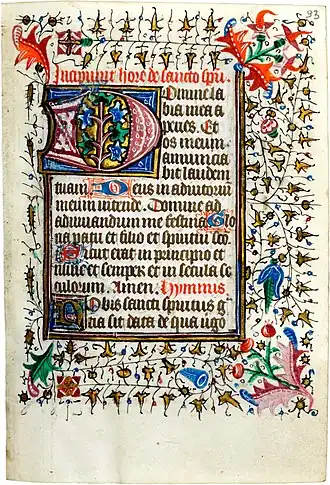 93
Incipiunt hore de sancto spu.
Domine la
bia mea a
peries. Et
os meum
annuncia
bit laudem
tuam. Deus in adiutorium
meum intende. Domine ad
adiuvandum me festina. Glo
ria patri et filio et spiritui sco.
Sicut erat in principio et
nunc et semper et in secula se
culorum. Amen. Hymnus
Nobis sancti spiritus g
racia sit data de qua virgo